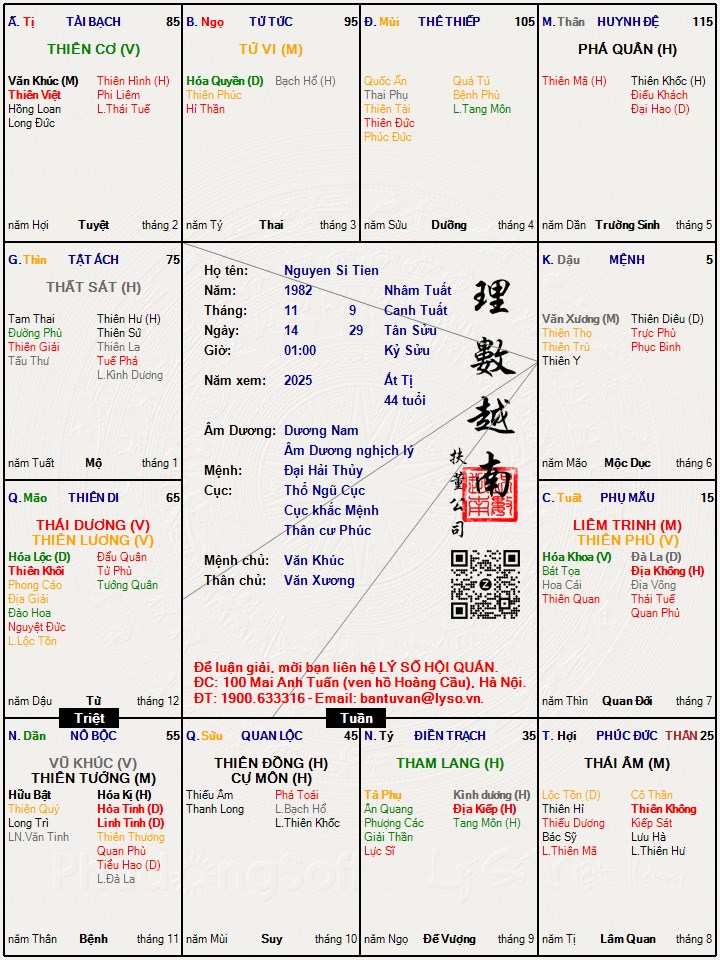 Ấ. Tị TÀI BẠCH 85
THIÊN CƠ (V)
Văn Khúc (M) Thiên Hình (H)
Thiên Việt Phi Liêm
Hồng Loan L.Thái Tuế
Long Đức
năm Hợi Tuyệt tháng 2
B. Ngọ TỬ TỨC 95
TỬ VI (M)
Hóa Quyền (D) Bạch Hổ (H)
Thiên Phúc
Hỉ Thần
năm Tý Thai tháng 3
Đ. Mùi THÊ THIẾP 105
Quốc Ấn Quả Tú
Thai Phụ Bệnh Phù
Thiên Tài L.Tang Môn
Thiên Đức
Phúc Đức
năm Sửu Dưỡng tháng 4
M. Thân HUYNH ĐỆ 115
PHÁ QUÂN (H)
Thiên Mã (H) Thiên Khốc (H)
Điếu Khách
Đại Hao (D)
năm Dần Trường Sinh tháng 5
G. Thìn TẬT ÁCH 75
THẤT SÁT (H)
Tam Thai Thiên Hư (H)
Đường Phù Thiên Sứ
Thiên Giải Thiên La
Tấu Thư Tuế Phá
L.Kình Dương
năm Tuất Mộ tháng 1
Họ tên: Nguyen Si Tien
Năm: 1982 Nhâm Tuất
Tháng: 11 9 Canh Tuất
Ngày: 14 29 Tân Sửu
Giờ: 01:00 Kỷ Sửu
Năm xem: 2025 Ất Tị
44 tuổi
Âm Dương: Dương Nam
Âm Dương nghịch lý
Mệnh: Đại Hải Thủy
Cục: Thổ Ngũ Cục
Cục khắc Mệnh
Thân cư Phúc
Mệnh chủ: Văn Khúc
Thân chủ: Văn Xương
理數越南
扶董公司
Để luận giải, mời bạn liên hệ LÝ SỐ HỘI QUÁN.
ĐC: 100 Mai Anh Tuấn (ven hồ Hoàng Cầu), Hà Nội.
ĐT: 1900.633316 - Email: bantuvan@lyso.vn.
K. Dậu MỆNH 5
Văn Xương (M) Thiên Diêu (D)
Thiên Thọ Trực Phù
Thiên Trù Phục Binh
Thiên Y
năm Mão Mộc Dục tháng 6
Q. Mão THIÊN DI 65
THÁI DƯƠNG (V)
THIÊN LƯƠNG (V)
Hóa Lộc (D) Đẩu Quân
Thiên Khôi Tử Phù
Phong Cáo Tướng Quân
Địa Giải
Đào Hoa
Nguyệt Đức
L.Lộc Tồn
năm Dậu Tử tháng 12
C. Tuất PHỤ MẪU 15
LIÊM TRINH (M)
THIÊN PHỦ (V)
Hóa Khoa (V) Đà La (D)
Bát Tọa Địa Không (H)
Hoa Cái Địa Võng
Thiên Quan Thái Tuế
Quan Phủ
năm Thìn Quan Đới tháng 7
Triệt
Tuần
N. Dần NÔ BỘC 55
VŨ KHÚC (V)
THIÊN TƯỚNG (M)
Hữu Bật Hóa Kị (H)
Thiên Quý Hỏa Tinh (D)
Long Trì Linh Tinh (D)
LN.Văn Tinh Thiên Thương
Quan Phù
Tiểu Hao (D)
L.Đà La
năm Thân Bệnh tháng 11
Q. Sửu QUAN LỘC 45
THIÊN ĐỒNG (H)
CỰ MÔN (H)
Thiếu Âm Phá Toái
Thanh Long L.Bạch Hổ
L.Thiên Khốc
năm Mùi Suy tháng 10
N. Tý ĐIỀN TRẠCH 35
THAM LANG (H)
Tả Phụ Kình dương (H)
Ân Quang Địa Kiếp (H)
Phượng Các Tang Môn (H)
Giải Thần
Lực Sĩ
năm Ngọ Đế Vượng tháng 9
T. Hợi PHÚC ĐỨC THÂN 25
THÁI ÂM (M)
Lộc Tồn (D) Cô Thần
Thiên Hỉ Thiên Không
Thiếu Dương Kiếp Sát
Bác Sỹ Lưu Hà
L.Thiên Mã L.Thiên Hư
năm Tị Lâm Quan tháng 8